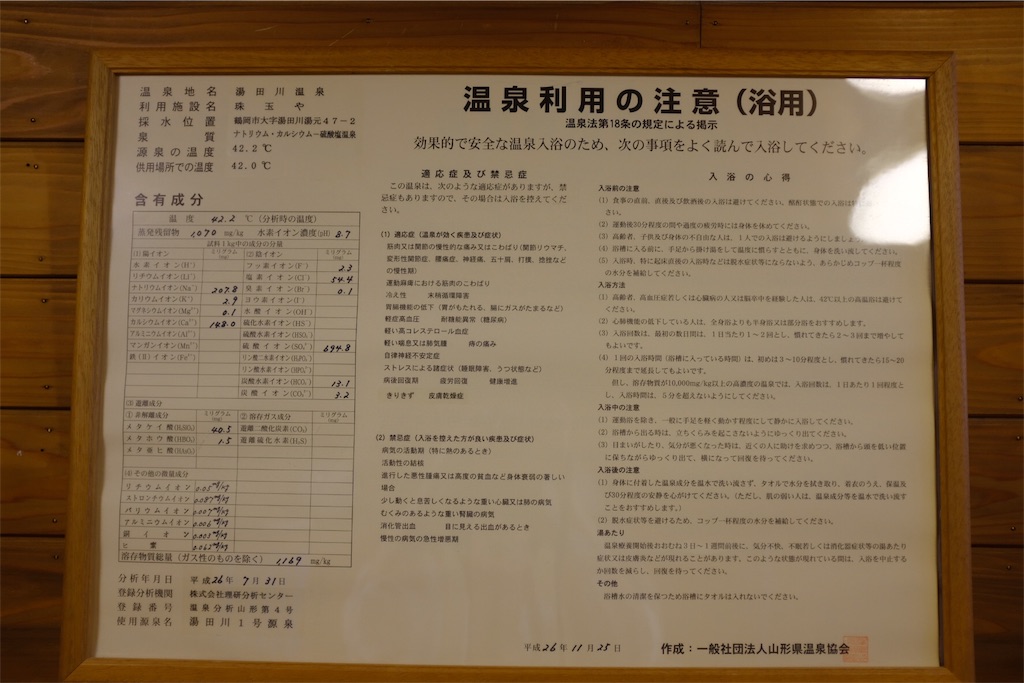 温泉利用の注意（浴用）
温泉法第18条の規定による掲示
効果的で安全な温泉入浴のため、次の事項をよく読んで入浴してください。
温泉地名 湯田川温泉
利用施設名 珠玉や
採水位置 鶴岡市大字湯田川湯元４７－２
泉質 ナトリウム・カルシウム－硫酸塩温泉
源泉の温度 42.2 ℃
供用場所での温度 42.0 ℃
含有成分
温度 42.2 ℃（分析時の温度）
蒸発残留物 1,070 mg/kg 水素イオン濃度(pH) 8.7
試料１kg中の成分の分量
(1) 陽イオン ミリグラム(mg) (2) 陰イオン ミリグラム(mg)
水素イオン(H⁺) フッ素イオン(F⁻) 2.3
リチウムイオン(Li⁺) 塩素イオン(Cl⁻) 54.4
ナトリウムイオン(Na⁺) 207.8 臭素イオン(Br⁻) 0.1
カリウムイオン(K⁺) 2.9 ヨウ素イオン(I⁻)
マグネシウムイオン(Mg²⁺) 0.1 水酸イオン(OH⁻)
カルシウムイオン(Ca²⁺) 148.0 硫化水素イオン(HS⁻)
アルミニウムイオン(Al³⁺) 硫酸水素イオン(HSO₄⁻)
マンガンイオン(Mn²⁺) 硫酸イオン(SO₄²⁻) 694.8
鉄(Ⅱ)イオン(Fe²⁺) リン酸二水素イオン(H₂PO₄⁻)
リン酸水素イオン(HPO₄²⁻)
炭酸水素イオン(HCO₃⁻) 13.1
炭酸イオン(CO₃²⁻) 3.2
(3) 遊離成分
① 非解離成分 ミリグラム(mg) ② 溶存ガス成分 ミリグラム(mg)
メタケイ酸(H₂SiO₃) 40.5 遊離二酸化炭素(CO₂)
メタホウ酸(HBO₂) 1.5 遊離硫化水素(H₂S)
メタ亜ヒ酸(HAsO₂)
(4) その他の微量成分
リチウムイオン 0.05 mg/kg
ストロンチウムイオン 0.087 mg/kg
バリウムイオン 0.007 mg/kg
アルミニウムイオン 0.006 mg/kg
銅イオン 0.003 mg/kg
ヒ素 0.062 mg/kg
溶存物質総量（ガス性のものを除く） 1,169 mg/kg
分析年月日 平成26年 7月31日
登録分析機関 株式会社理研分析センター
登録番号 温泉分析山形第４号
使用源泉名 湯田川１号源泉
適応症及び禁忌症
この温泉は、次のような適応症がありますが、禁
忌症もありますので、その場合は入浴を控えてくだ
さい。
(1) 適応症（温泉が効く疾患及び症状）
筋肉又は関節の慢性的な痛み又はこわばり（関節リウマチ、
変形性関節症、腰痛症、神経痛、五十肩、打撲、捻挫など
の慢性期）
運動麻痺における筋肉のこわばり
冷え性 末梢循環障害
胃腸機能の低下（胃がもたれる、腸にガスがたまるなど）
軽症高血圧 耐糖能異常（糖尿病）
軽い高コレステロール血症
軽い喘息又は肺気腫 痔の痛み
自律神経不安定症
ストレスによる諸症状（睡眠障害、うつ状態など）
病後回復期 疲労回復 健康増進
きりきず 皮膚乾燥症
(2) 禁忌症（入浴を控えた方が良い疾患及び症状）
病気の活動期（特に熱のあるとき）
活動性の結核
進行した悪性腫瘍又は高度の貧血など身体衰弱の著しい
場合
少し動くと息苦しくなるような重い心臓又は肺の病気
むくみのあるような重い腎臓の病気
消化管出血 目に見える出血があるとき
慢性の病気の急性増悪期
入浴の心得
入浴前の注意
(1) 食事の直前、直後及び飲酒後の入浴は避けてください。酩酊状態での入浴は
さい。
(2) 運動後30分程度の間や過度の疲労時には身体を休めてください。
(3) 高齢者、子供及び身体の不自由な人は、１人での入浴は避けるようにしましょ
(4) 浴槽に入る前に、手足から掛け湯をして温度に慣らすとともに、身体を洗い流してください。
(5) 入浴時、特に起床直後の入浴時などは脱水症状等にならないよう、あらかじめコップ一杯程度
の水分を補給してください。
入浴方法
(1) 高齢者、高血圧症若しくは心臓病の人又は脳卒中を経験した人は、42℃以上の高温浴は避けて
ください。
(2) 心肺機能の低下している人は、全身浴よりも半身浴又は部分浴をおすすめします。
(3) 入浴回数は、最初の数日間は、１日当たり１～２回とし、慣れてきたら２～３回まで増やして
もよいです。
(4) １回の入浴時間（浴槽に入っている時間）は、初めは３～10分程度とし、慣れてきたら15～20
分程度まで延長してもよいです。
但し、溶存物質が10,000mg/kg以上の高濃度の温泉では、入浴回数は、１日あたり１回程度と
し、入浴時間は、５分を超えないようにしてください。
入浴中の注意
(1) 運動浴を除き、一般に手足を軽く動かす程度にして静かに入浴してください。
(2) 浴槽から出る時は、立ちくらみを起こさないようにゆっくり出てください。
(3) 目まいがしたり、気分が悪くなった時は、近くの人に助けを求めつつ、浴槽から頭を低い位置
に保ちながらゆっくり出て、横になって回復を待ってください。
入浴後の注意
(1) 身体に付着した温泉成分を温水で洗い流さず、タオルで水分を拭き取り、着衣のうえ、保温及
び30分程度の安静を心がけてください。（ただし、肌の弱い人は、温泉成分等を温水で洗い流す
ことをおすすめします。）
(2) 脱水症状等を避けるため、コップ一杯程度の水分を補給してください。
湯あたり
温泉療養開始後おおむね３日～１週間前後に、気分不快、不眠若しくは消化器症状等の湯あたり
症状又は皮膚炎などが現れることがあります。このような状態が現れている間は、入浴を中止する
か回数を減らし、回復を待ってください。
その他
浴槽水の清潔を保つため浴槽にタオルは入れないでください。
平成26年11月25日 作成：一般社団法人山形県温泉協会